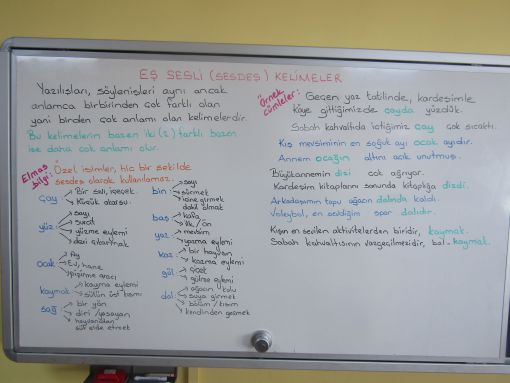 EŞ SESLİ (SESDEŞ) KELİMELER
Yazılışları, söylenişleri aynı ancak
anlamca birbirinden çok farklı olan
yani birden çok anlamı olan kelimelerdir.
Bu kelimelerin bazen iki (2) farklı bazen
ise daha çok anlamı olur.
Elmas bilgi:
Özel isimler, hiç bir şekilde
sesdeş olarak kullanılamaz.
çay → Bir sıvı, içecek.
→ Küçük akarsu.
yüz → sayı
→ surat
→ yüzme eylemi
→ deri çıkartmak
ocak → Ay
→ Ev, hane
→ pişirme aracı
kaymak → kayma eylemi
→ sütün üst kısmı
sağ → bir yön
→ diri / yaşayan
→ hayvandan
süt elde etmek
bin → sayı
→ sürmek
→ içine girmek
dahil olmak
baş → kafa
→ ilk / ön
yaz → mevsim
→ yazma eylemi
kaz → bir hayvan
→ kazma eylemi
gül → çiçek
→ gülme eylemi
dal → ağacın kolu
→ suya girmek
→ bölüm / kısım
→ kendinden geçmek
Örnek cümleler:
Geçen yaz tatilinde, kardeşimle
köye gittiğimizde çayda yüzdük.
Sabah kahvaltıda içtiğimiz çay çok sıcaktı.
Kış mevsiminin en soğuk ayı ocak ayıdır.
Annem ocağın altını açık unutmuş.
Büyükannemin dişi çok ağrıyor.
Kardeşim kitaplarını sonunda kitaplığa dizdi.
Arkadaşımın topu ağacın dalında kaldı.
Voleybol, en sevdiğim spor dalıdır.
Kışın en sevilen aktivitelerden biridir, kaymak.
Sabah kahvaltısının vazgeçilmezidir, bal-kaymak.